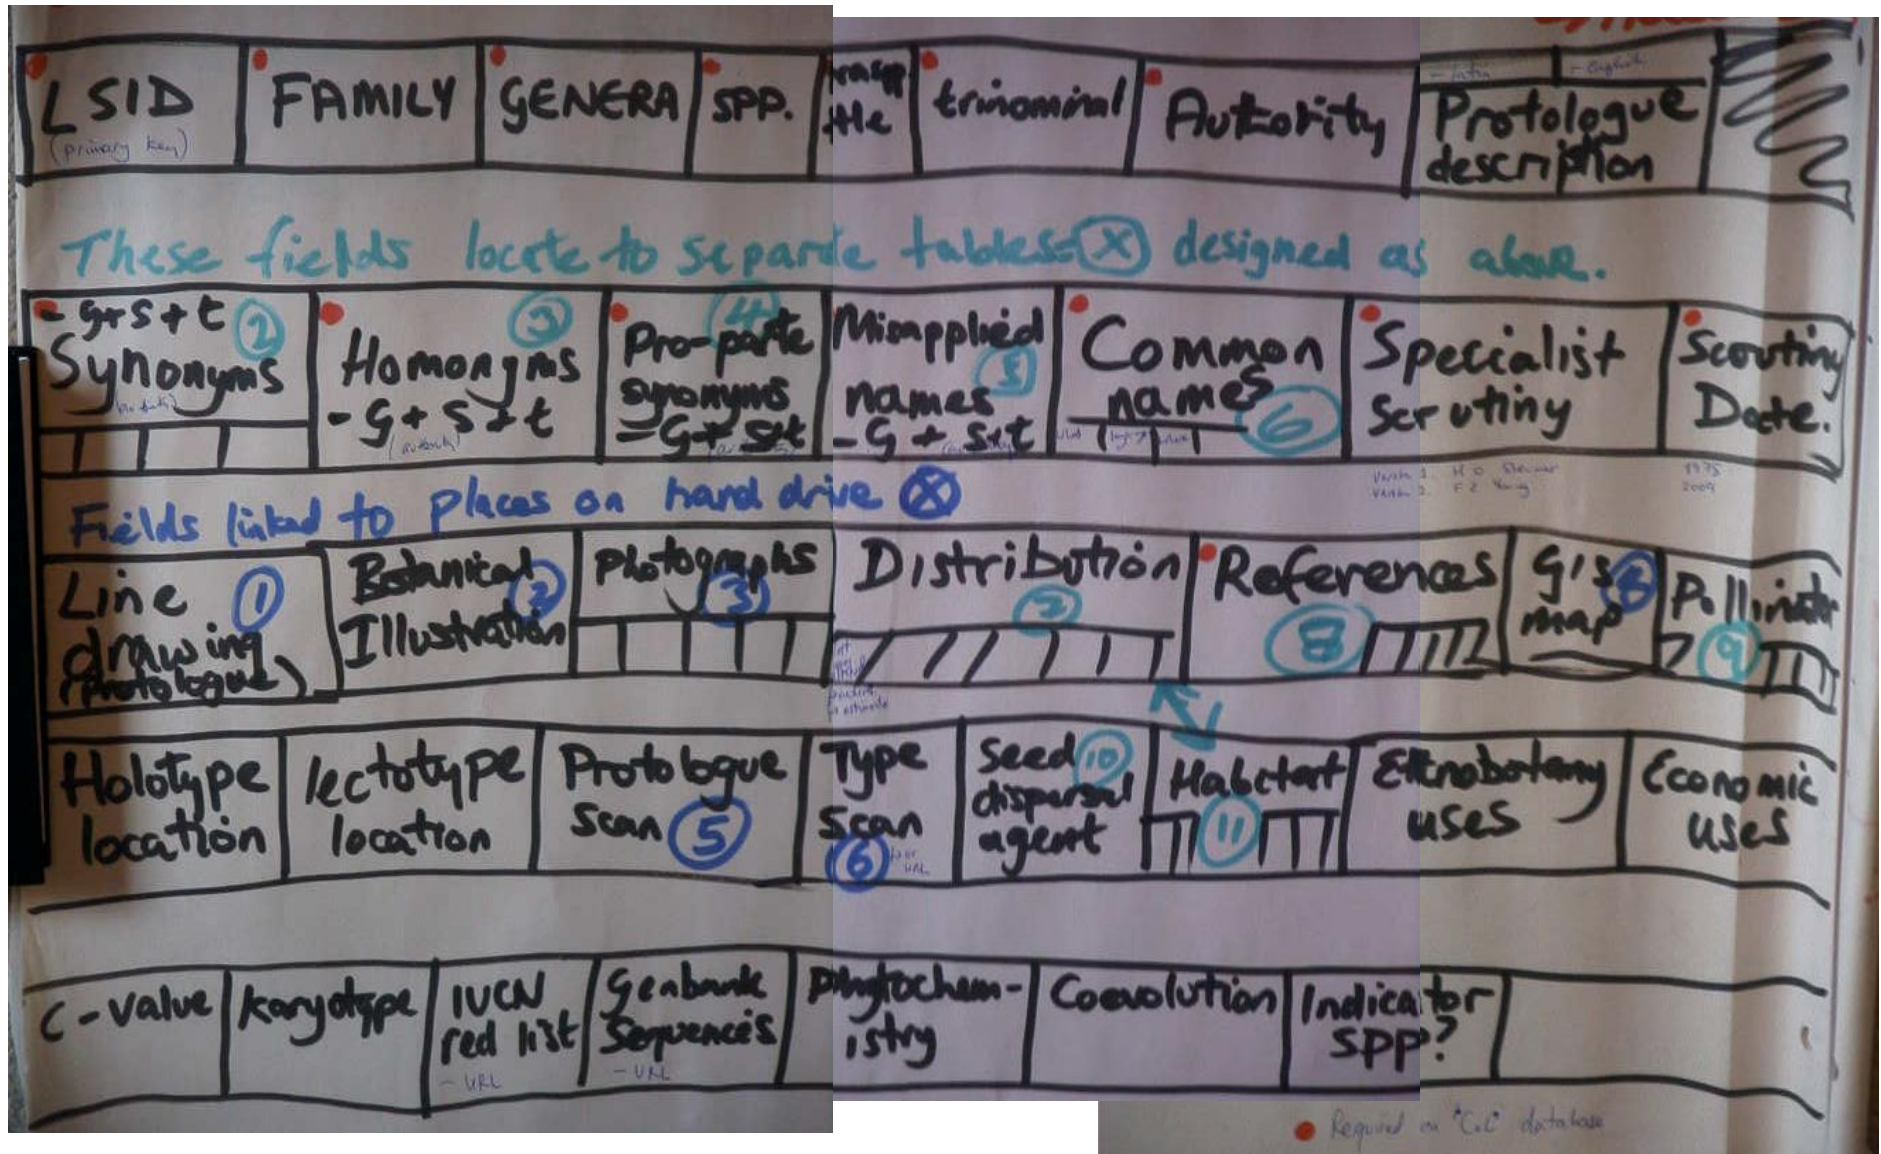 LSID
(primary key)
FAMILY
GENERA
SPP.
trinominal
Authority
- latin
- english
Protologue
description
These fields locate to separate tables=X designed as above.
- g+s+t
2
Synonyms
3
Homonyms
- G + S + t
(authority)
4
Pro-parte
synonyms
- G + S+t
Misapplied
5
names
- G + S+t
Common
names
6
Specialist
scrutiny
Version 1.
Version 2.
Scrutiny
Date.
1975
2009
Fields linked to places on hard drive X
Line
1
drawing
(protologue)
Botanical
2
Illustration
Photographs
3
Distribution
7
References
8
GIS
map
Pollinator
9
Holotype
location
lectotype
location
Protologue
scan 5
Type
scan
6
URL
Seed
10
dispersal
agent
Habitat
11
Ethnobotany
uses
Economic
uses
C-value
Karyotype
IUCN
red list
- URL
Genbank
Sequences
- URL
Phytochem-
istry
Coevolution
Indicator
SPP?
Required on "CoL" database